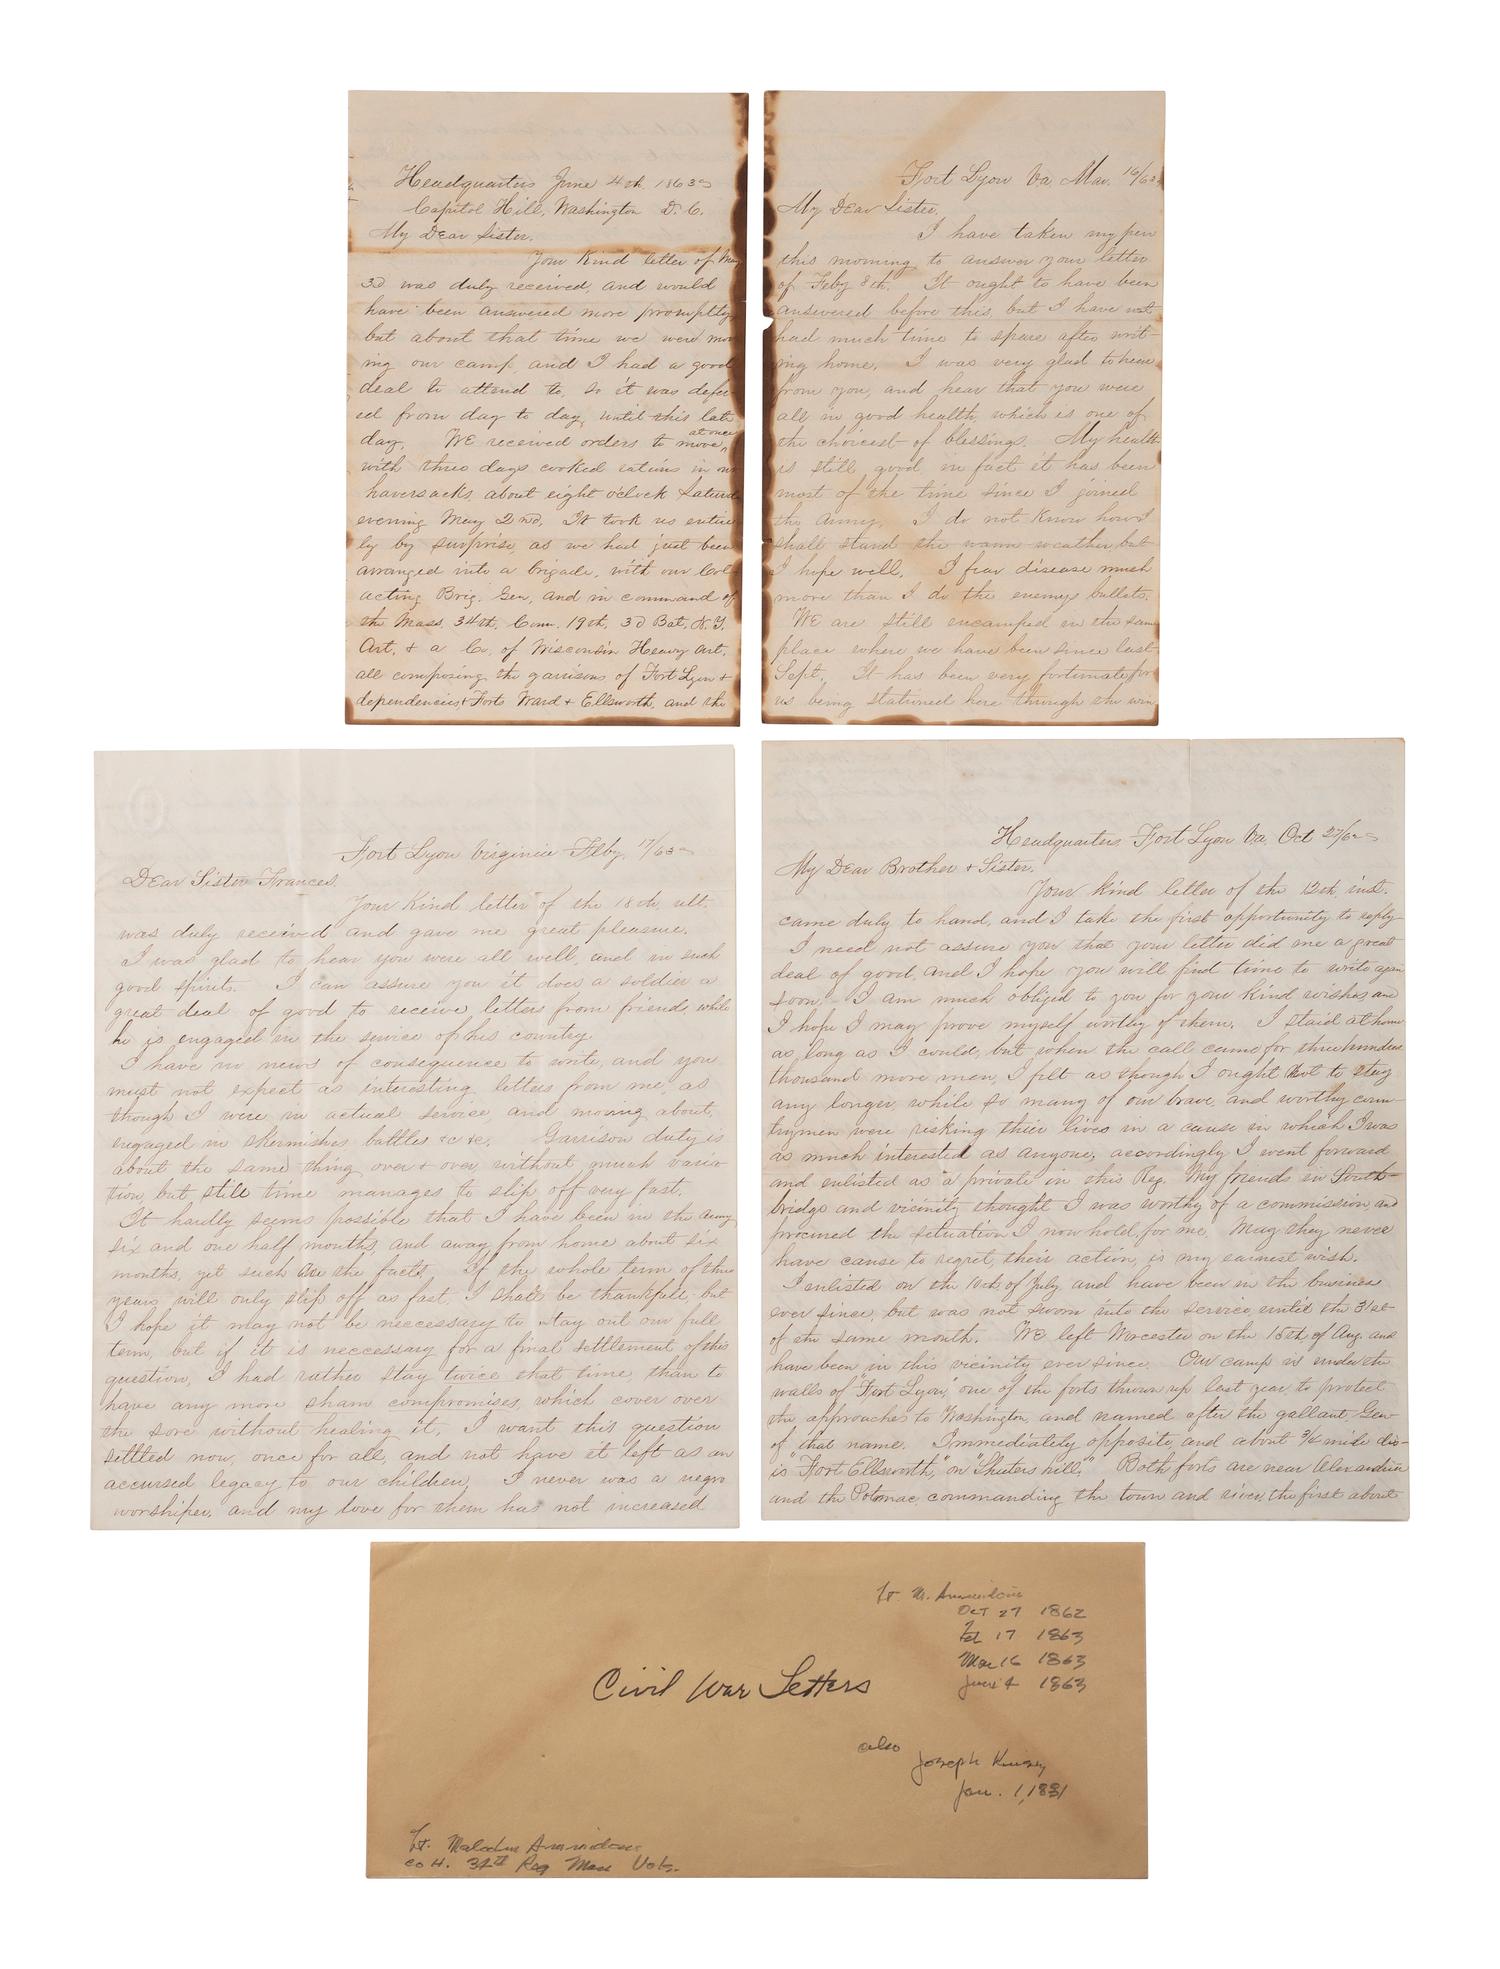 Headquarters June 4th. 1863
Capitol Hill, Washington D. C.
My Dear Sister.
Your Kind letter of May
3d was duly received, and would
have been answered more promptly,
but about that time we were mov
ing our camp, and I had a good
deal to attend to, so it was defer-
ed from day to day, until this late
day. We received orders to move, at once
with three days cooked rations in our
haversacks, about eight o'clock Saturd
evening May 2nd. It took us entire
ly by surprise, as we had just been
arranged into a brigade, with our Col
acting Brig. Gen, and in command of
the Mass. 34th, Conn. 19th, 3d Bat. N. Y.
Art, + a Co. of Wisconsin Heavy Art.
all composing the garrisons of Fort Lyon +
dependencies + Forts Ward + Ellsworth, and the
Fort Lyon Va Mar. 16/63
My Dear Sister.
I have taken my pen
this morning to answer your letter
of Feby 8th. It ought to have been
answered before this, but I have not
had much time to spare after writ-
ing home. I was very glad to hear
from you, and hear that you were
all in good health, which is one of
the choicest of blessings. My health
is still good, in fact it has been
most of the time since I joined
the Army. I do not know how I
shall stand the warm weather but
I hope well. I fear disease much
more than I do the enemys bullets.
WE are still encamped in the same
place where we have been since last
Sept. It has been very fortunate for
us being stationed here through the win
Fort Lyon Virginia Feby. 17/63
Dear Sister Frances.
Your Kind letter of the 18th ult.
was duly received and gave me great pleasure.
I was glad to hear you were all well, and in such
good spirits. I can assure you it does a soldier a
great deal of good to receive letters from friends, while
he is engaged in the service of his country.
I have no news of consequence to write, and you
must not expect as interesting letters from me, as
though I were in actual service, and moving about,
engaged in skirmishes battles &c &c. Garrison duty is
about the same thing over + over, without much varia-
tion, but still time manages to slip off very fast.
It hardly seems possible that I have been in the Army
six and one half months, and away from home about six
months, yet such are the facts. If the whole term of three
years will only slip off as fast, I shall be thankfull, but
I hope it may not be neccessary to stay out our full
term, but if it is neccessary for a final settlement of this
question, I had rather stay twice that time, than to
have any more sham compromises, which cover over
the sore without healing it. I want this question
settled now, once for all, and not have it left as an
accursed legacy to our children. I never was a negro
worshiper, and my love for them has not increased
Headquarters Fort Lyon Va. Oct 27/62
My Dear Brother + Sister.
Your kind letter of the 12th inst.
came duly to hand, and I take the first opportunity to reply
I need not assure you that your letter did me a great
deal of good, and I hope you will find time to write again
soon. I am much obliged to you for your kind wishes and
I hope I may prove myself worthy of them. I staid at home
as long as I could, but when the call came for three hundred
thousand more men, I felt as though I ought not to stay
any longer, while so many of our brave, and worthy coun-
trymen were risking their lives in a cause in which I was
as much interested as anyone, accordingly I went forward
and enlisted as a private in this Reg. My friends in South-
bridge and vicinity thought I was worthy of a commission, and
procured the situation I now hold, for me. May they never
have cause to regret, their action, is my earnest wish.
I enlisted on the 10th of July, and have been in the business
ever since, but was not sworn into the service, until the 31st
of the same month. WE left Worcester on the 15th of Aug. and
have been in this vicinity ever since. Our camp is under the
walls of "Fort Lyon," one of the forts thrown up last year, to protect
the approaches to Washington, and named after the gallant Gen
of that name. Immediately opposite, and about 3/4 mile dis-
is "Fort Ellsworth," on "Shuters hill." Both forts are near Alexandria
and the Potomac, commanding the town and river, the first about
Lt M. Ammidown
Oct 27 1862
Feb 17 1863
Mar 16 1863
June 4 1863
Civil War Letters
also
Joseph
Jan. 1, 1881
Lt. Ammidown
Co H. 34th Reg Mass Vols.